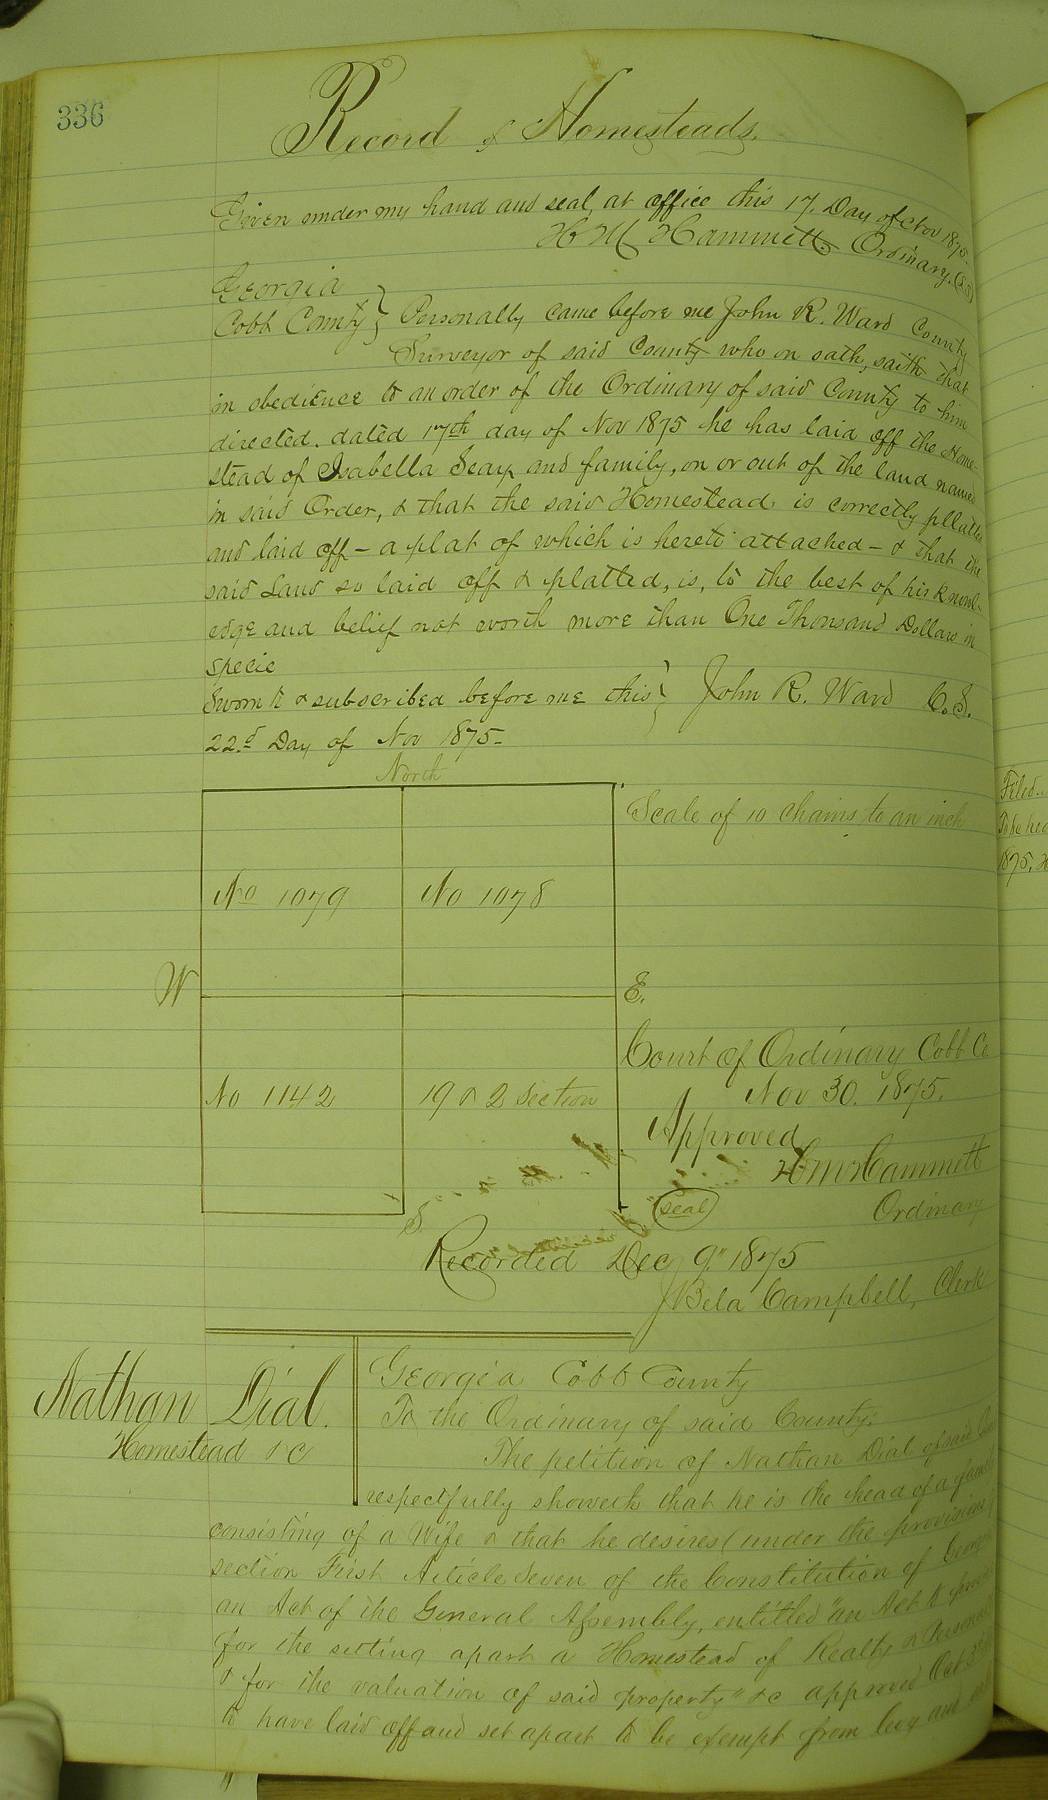 336
Record of Homesteads.
Given under my hand and seal, at office this 17, Day of Nov 1875.
H M Hammett Ordinary. (LS)
Georgia
Cobb County } Personally came before me John R. Ward County
Surveyor of said County who on oath, saith that
in obedience to an order of the Ordinary of said County to him
directed. dated 17th day of Nov 1875 he has laid off the Home-
stead of Isabella Seay and family, on or out of the land named
in said Order, & that the said Homestead is correctly pllatted
and laid off - a plat of which is hereto attached - & that the
said Land so laid off & platted, is, to the best of his knowl-
edge and belief not worth more than One Thousand Dollars in
specie
Sworn to & subscribed before me this } John R. Ward C.S.
22.d Day of Nov 1875-
North
Scale of 10 chains to an inch
No 1079 No 1078
W E.
Court of Ordinary Cobb Co
Nov 30. 1875.
No 1142 19 & 2 section
Approved
H M Hammett
seal Ordinary
S.
Recorded Dec 9" 1875
J Bela Campbell, Clerk
Nathan Dial.
Homestead &c
Georgia Cobb County
To the Ordinary of said County:
The petition of Nathan Dial of said
respectfully showeth that he is the head of a
consisting of a Wife & that he desires (under the provisions
section First Article Seven of the Constitution of
an Act of the General Assembly, entitled "an Act to
for the setting apart a Homestead of Realty &
& for the valuation of said property" &c approved Oct
to have laid off and set apart to be exempt from levy and
Filed..
To be
1875.